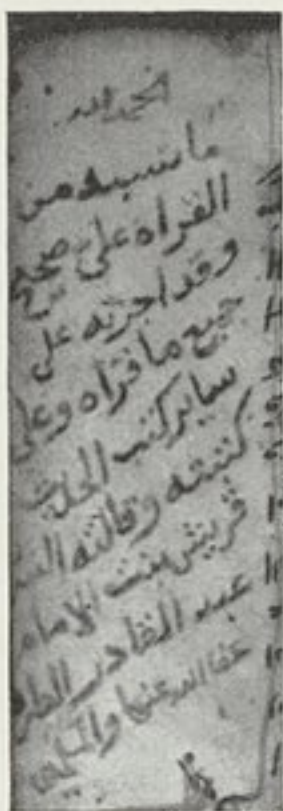 الحمد لله
ما نسبه من
القراة على صحيح
وقد اجزته على
جميع ما قراه وعلى
ساير كتب الحديث
كتبته وقالته
قريش بنت الامام
عبد القادر الطبري
عفا الله عنها والمسلمين